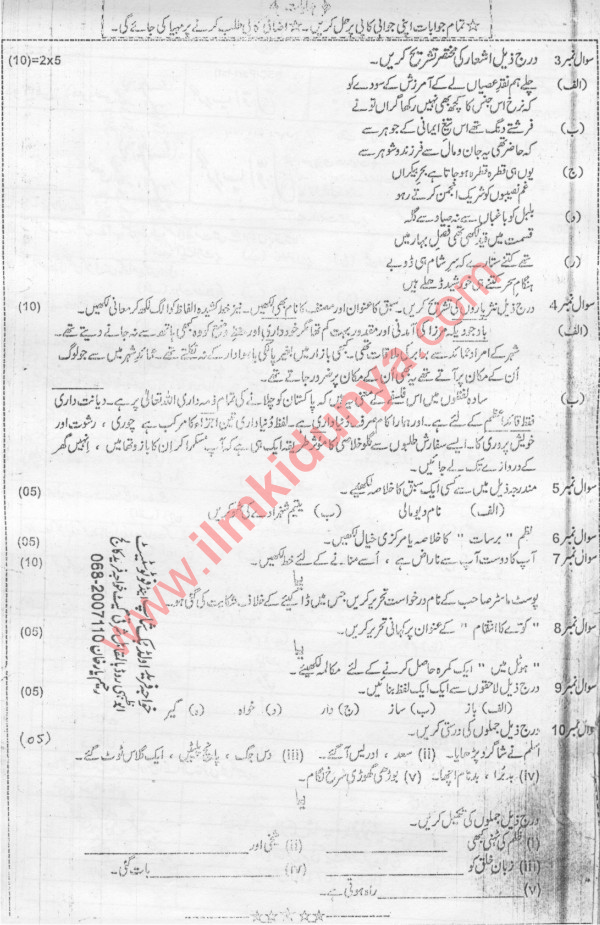 ☆ تمام جوابات اپنی جوابی کاپی پر حل کریں۔ ☆ اضافی کاپی طلب کرنے پر مہیا کی جائے گی۔
سوال نمبر 3 درج ذیل اشعار کی مختصر تشریح کریں۔ (10)=2x5
(الف) چلے ہم نقدِ عصیاں لے کے آمرزش کے سودے کو
کہ نرخ اس جنس کا کچھ بھی نہیں رکھا گراں تو نے
(ب) فرشتے دنگ تھے اس تیغِ ایمانی کے جوہر سے
کہ حاضر تھی یہ جان و مال سے فرزند و شوہر سے
(ج) یوں ہی قطرہ قطرہ ہو جاتا ہے بحرِ بیکراں
غم نصیبوں کو شریک انجمن کرتے رہو
(د) بلبل کو باغباں سے نہ صیاد سے گلہ
قسمت میں قید لکھی تھی فصلِ بہار میں
(ر) تھے کتنے ستارے کہ سرِ شام ہی ڈوبے
ہنگامِ سحر کتنے ہی خورشید ڈھلے ہیں
سوال نمبر 4 درج ذیل نثر پاروں کی تشریح کریں۔ سبق کا عنوان اور مصنف کا نام بھی لکھیں۔ نیز خط کشیدہ الفاظ کو الگ لکھ کر معانی لکھیں۔ (10)
(الف) باوجودیکہ مرزا کی آمدنی اور مقدور بہت کم تھا مگر خودداری اور حفظِ وضع کو وہ کبھی ہاتھ سے نہ جانے دیتے تھے۔
شہر کے امرا و عمائد سے برابر کی ملاقات تھی۔ کبھی بازار میں بغیر پالکی یا ہوادار کے نہ نکلتے تھے۔ عمائدِ شہر میں سے جو لوگ
اُن کے مکان پر آتے تھے یہ بھی اُن کے مکان پر ضرور جاتے تھے۔
(ب) سادہ لفظوں میں اس فلسفے کے معنی یہ ہیں کہ پاکستان کو چلانے کی تمام ذمہ داری اللہ تعالیٰ پر ہے۔ دیانت داری
فقط قائداعظم کے لئے ہے۔ اور ہمارا کام صرف دُنیا داری ہے۔ لفظ دُنیا داری تین اجزاء کا مرکب ہے چوری ، رشوت اور
خویش پروری کا۔ ایسے سفارش طلبوں سے گلو خلاصی کا مؤثر طریقہ ایک ہی ہے کہ آپ مسکرا کر اِن کا بازو تھا میں ، اِنہیں گھر
کے دروازے تک لے جائیں۔
سوال نمبر 5 مندرجہ ذیل میں سے کسی ایک سبق کا خلاصہ لکھیے۔ (05)
(الف) نام دیو مالی (ب) یتیم شہزادے کی ٹھوکریں
سوال نمبر 6 نظم " برسات " کا خلاصہ یا مرکزی خیال لکھیں۔ (05)
سوال نمبر 7 آپ کا دوست آپ سے ناراض ہے ، اُسے منانے کے لئے خط لکھیں۔ (10)
یا
پوسٹ ماسٹر صاحب کے نام درخواست تحریر کریں جس میں ڈاکیے کے خلاف شکایت کی گئی ہو۔
سوال نمبر 8 " کوّے کا انتقام " کے عنوان پر کہانی تحریر کریں۔ (05)
یا
" ہوٹل میں " ایک کمرہ حاصل کرنے کے لئے مکالمہ لکھیے۔
سوال نمبر 9 درج ذیل لاحقوں سے ایک ایک لفظ بنائیں۔ (05)
(الف) باز (ب) ساز (ج) دار (د) خواہ (ہ) گیر
سوال نمبر 10 درج ذیل جملوں کی درستی کریں۔ (05)
(i) اسلم نے شاگرد پڑھایا۔ (ii) سعد ، ادریس آ گئے۔ (iii) دس جگ ، پانچ پلیٹیں ، ایک گلاس ٹوٹ گئے۔
(iv) بد بُرا ، بدنام اچھا۔ (v) بوڑھی گھوڑی سُرخ لگام۔
یا
درج ذیل جملوں کی تکمیل کریں۔
(i) ظلم کی ٹہنی کبھی ________ (ii) شیخی اور ________
(iii) زبانِ خلق کو ________ (iv) ________ بات گئی۔
(v) ________ راہ ہوتی ہے۔
068-2007110
www.ilmkidunya.com